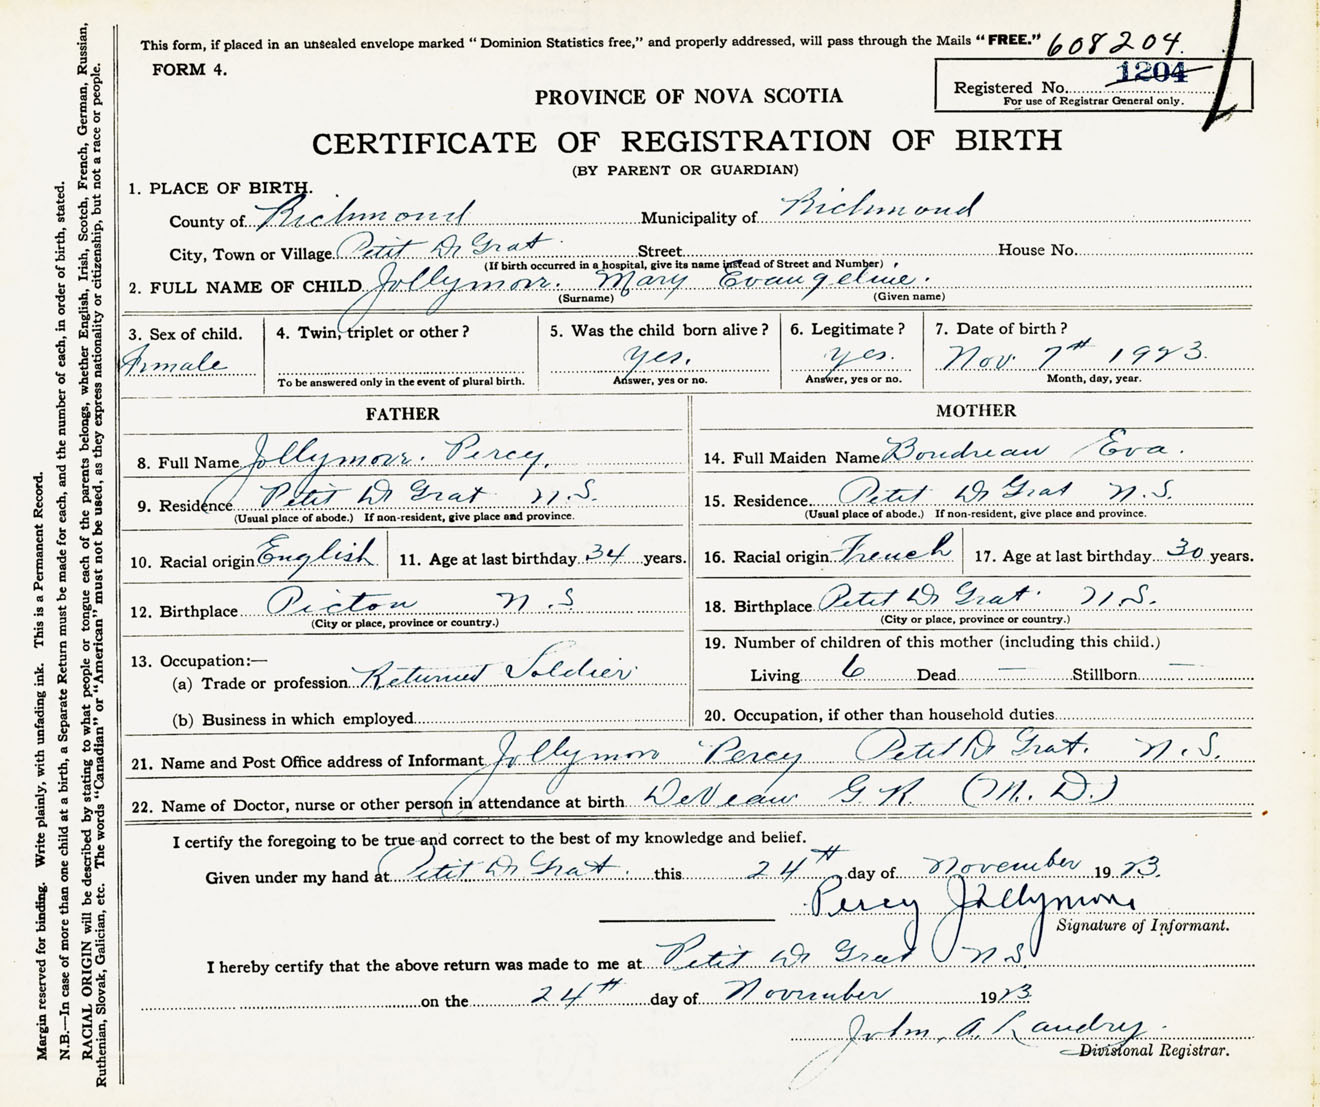 This form, if placed in an unsealed envelope marked "Dominion Statistics free," and properly addressed, will pass through the Mails "FREE." 608204.
FORM 4.
1204
Registered No.
For use of Registrar General only.
PROVINCE OF NOVA SCOTIA
CERTIFICATE OF REGISTRATION OF BIRTH
(BY PARENT OR GUARDIAN)
1. PLACE OF BIRTH.
County of Richmond Municipality of Richmond
City, Town or Village Petit De Grat Street House No.
(If birth occurred in a hospital, give its name instead of Street and Number)
2. FULL NAME OF CHILD Jollymore. Mary Evangeline.
(Surname) (Given name)
3. Sex of child. 4. Twin, triplet or other? 5. Was the child born alive? 6. Legitimate? 7. Date of birth?
Female yes. yes. Nov. 7th 1923.
To be answered only in the event of plural birth. Answer, yes or no. Answer, yes or no. Month, day, year.
FATHER MOTHER
8. Full Name Jollymore. Percy. 14. Full Maiden Name Boudreau Eva.
9. Residence Petit De Grat N.S. 15. Residence Petit De Grat N.S.
(Usual place of abode.) If non-resident, give place and province. (Usual place of abode.) If non-resident, give place and province.
10. Racial origin English 11. Age at last birthday 34 years. 16. Racial origin French 17. Age at last birthday 30 years.
12. Birthplace Pictou N.S 18. Birthplace Petit De Grat. N.S.
(City or place, province or country.) (City or place, province or country.)
19. Number of children of this mother (including this child.)
13. Occupation:—
(a) Trade or profession Returned Soldier Living 6 Dead — Stillborn —
(b) Business in which employed 20. Occupation, if other than household duties
21. Name and Post Office address of Informant Jollymore Percy Petit De Grat. N.S.
22. Name of Doctor, nurse or other person in attendance at birth DeVeau G.R. (M.D.)
I certify the foregoing to be true and correct to the best of my knowledge and belief.
Given under my hand at Petit De Grat. this 24th day of November 1923.
Percy Jollymore
Signature of Informant.
I hereby certify that the above return was made to me at Petit De Grat N.S.
on the 24th day of November 1923
John A. Landry.
Divisional Registrar.
Margin reserved for binding. Write plainly, with unfading ink. This is a Permanent Record.
N.B.—In case of more than one child at a birth, a Separate Return must be made for each, and the number of each, in order of birth, stated.
RACIAL ORIGIN will be described by stating to what people or tongue each of the parents belongs, whether English, Irish, Scotch, French, German, Russian,
Ruthenian, Slovak, Galician, etc. The words "Canadian" or "American" must not be used, as they express nationality or citizenship, but not a race or people.